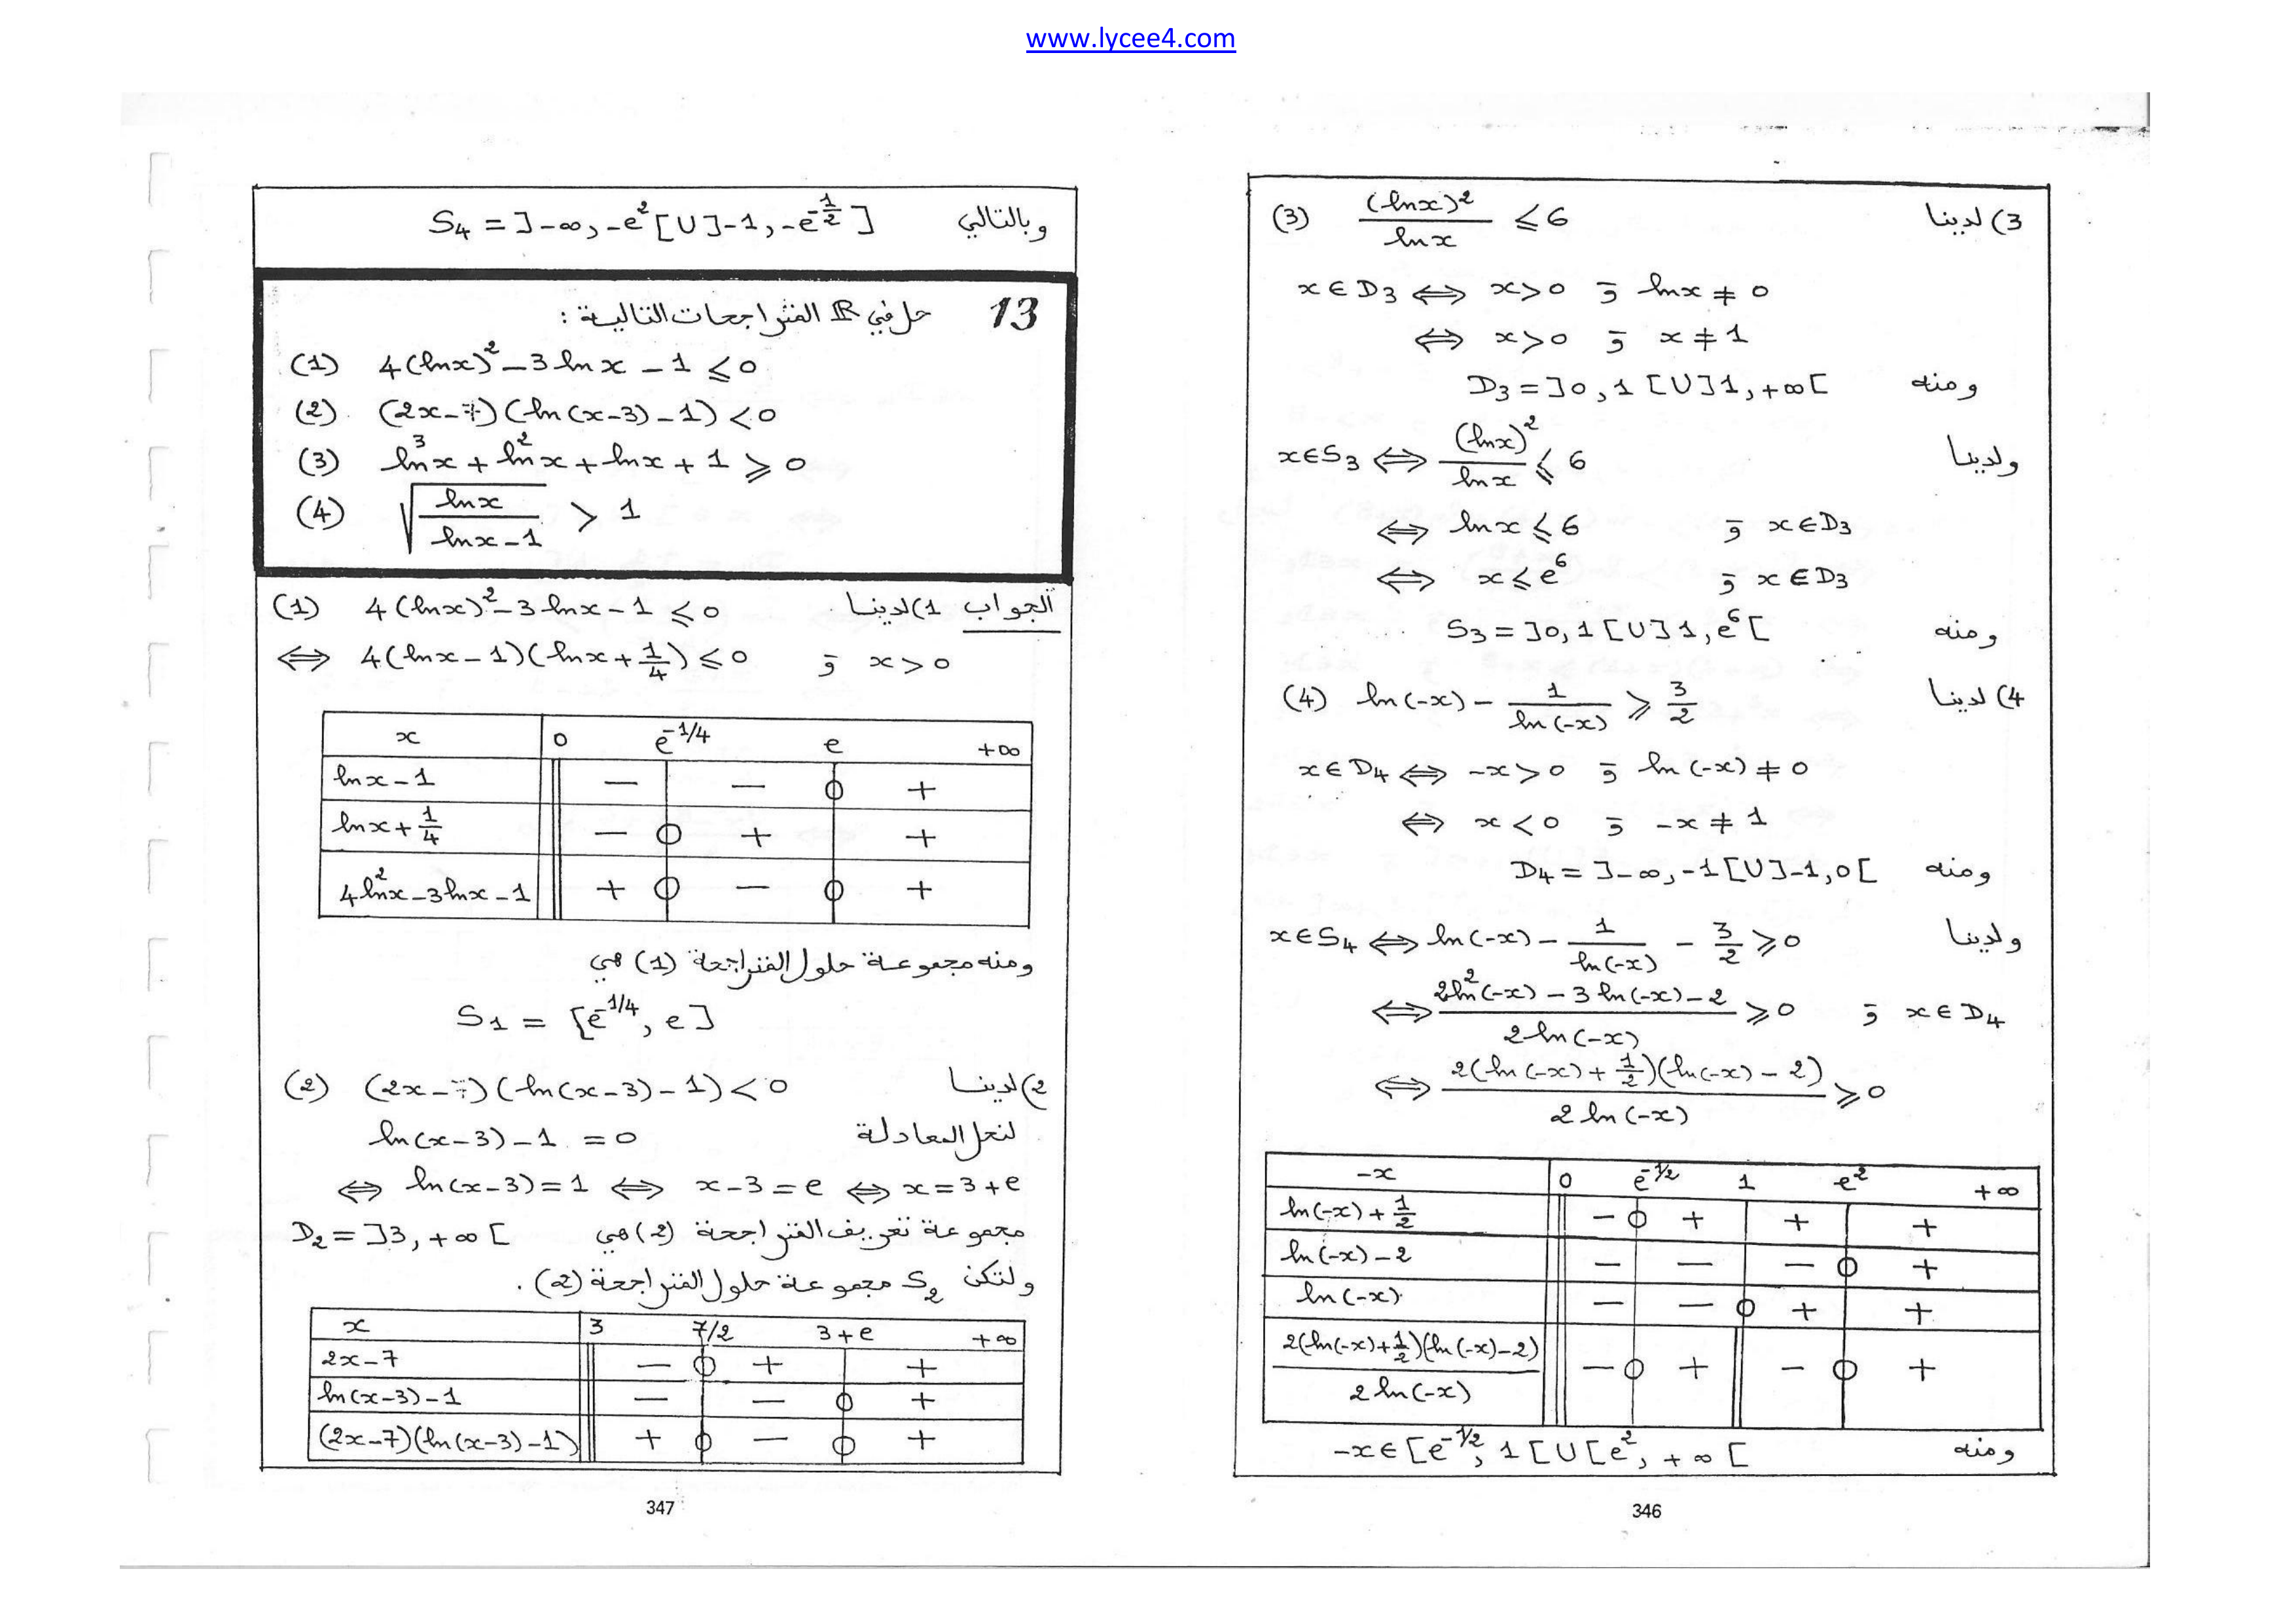 www.lycee4.com
3) لدينا (3) (lnx)² / lnx ⩽ 6
x ∈ D₃ ⟺ x > 0 و lnx ≠ 0
⟺ x > 0 و x ≠ 1
ومنه D₃ = ]0, 1[ U ]1, +∞[
ولدينا x ∈ S₃ ⟺ (lnx)² / lnx ⩽ 6
⟺ lnx ⩽ 6 و x ∈ D₃
⟺ x ⩽ e⁶ و x ∈ D₃
ومنه S₃ = ]0, 1[ U ]1, e⁶[
4) لدينا (4) ln(-x) - 1 / ln(-x) ⩾ 3/2
x ∈ D₄ ⟺ -x > 0 و ln(-x) ≠ 0
⟺ x < 0 و -x ≠ 1
ومنه D₄ = ]-∞, -1[ U ]-1, 0[
ولدينا x ∈ S₄ ⟺ ln(-x) - 1 / ln(-x) - 3/2 ⩾ 0
⟺ (2ln²(-x) - 3 ln(-x) - 2) / 2 ln(-x) ⩾ 0 و x ∈ D₄
⟺ 2(ln(-x) + 1/2)(ln(-x) - 2) / 2 ln(-x) ⩾ 0
-x 0 e^-1/2 1 e² +∞
ln(-x) + 1/2 - 0 + + +
ln(-x) - 2 - - - 0 +
ln(-x) - - 0 + +
2(ln(-x) + 1/2)(ln(-x) - 2) / 2 ln(-x) - 0 + - 0 +
ومنه -x ∈ [e^-1/2, 1[ U [e², +∞[
346
وبالتالي S₄ = ]-∞, -e²[ U ]-1, -e^-1/2]
13 حل في ℝ المتراجحات التالية :
(1) 4(lnx)² - 3 lnx - 1 ⩽ 0
(2) (2x - 7)(ln(x-3) - 1) < 0
(3) ln³x + ln²x + lnx + 1 ⩾ 0
(4) √(lnx / (lnx - 1)) > 1
الجواب 1) لدينا (1) 4(lnx)² - 3 lnx - 1 ⩽ 0
⟺ 4(lnx - 1)(lnx + 1/4) ⩽ 0 و x > 0
x 0 e^-1/4 e +∞
lnx - 1 - - 0 +
lnx + 1/4 - 0 + +
4ln²x - 3lnx - 1 + 0 - 0 +
ومنه مجموعة حلول المتراجحة (1) هي
S₁ = [e^-1/4, e]
2) لدينا (2) (2x - 7)(ln(x-3) - 1) < 0
لنحل المعادلة ln(x-3) - 1 = 0
⟺ ln(x-3) = 1 ⟺ x - 3 = e ⟺ x = 3 + e
مجموعة تعريف المتراجحة (2) هي D₂ = ]3, +∞[
ولتكن S₂ مجموعة حلول المتراجحة (2).
x 3 7/2 3+e +∞
2x - 7 - 0 + +
ln(x-3) - 1 - - 0 +
(2x-7)(ln(x-3) - 1) + 0 - 0 +
347